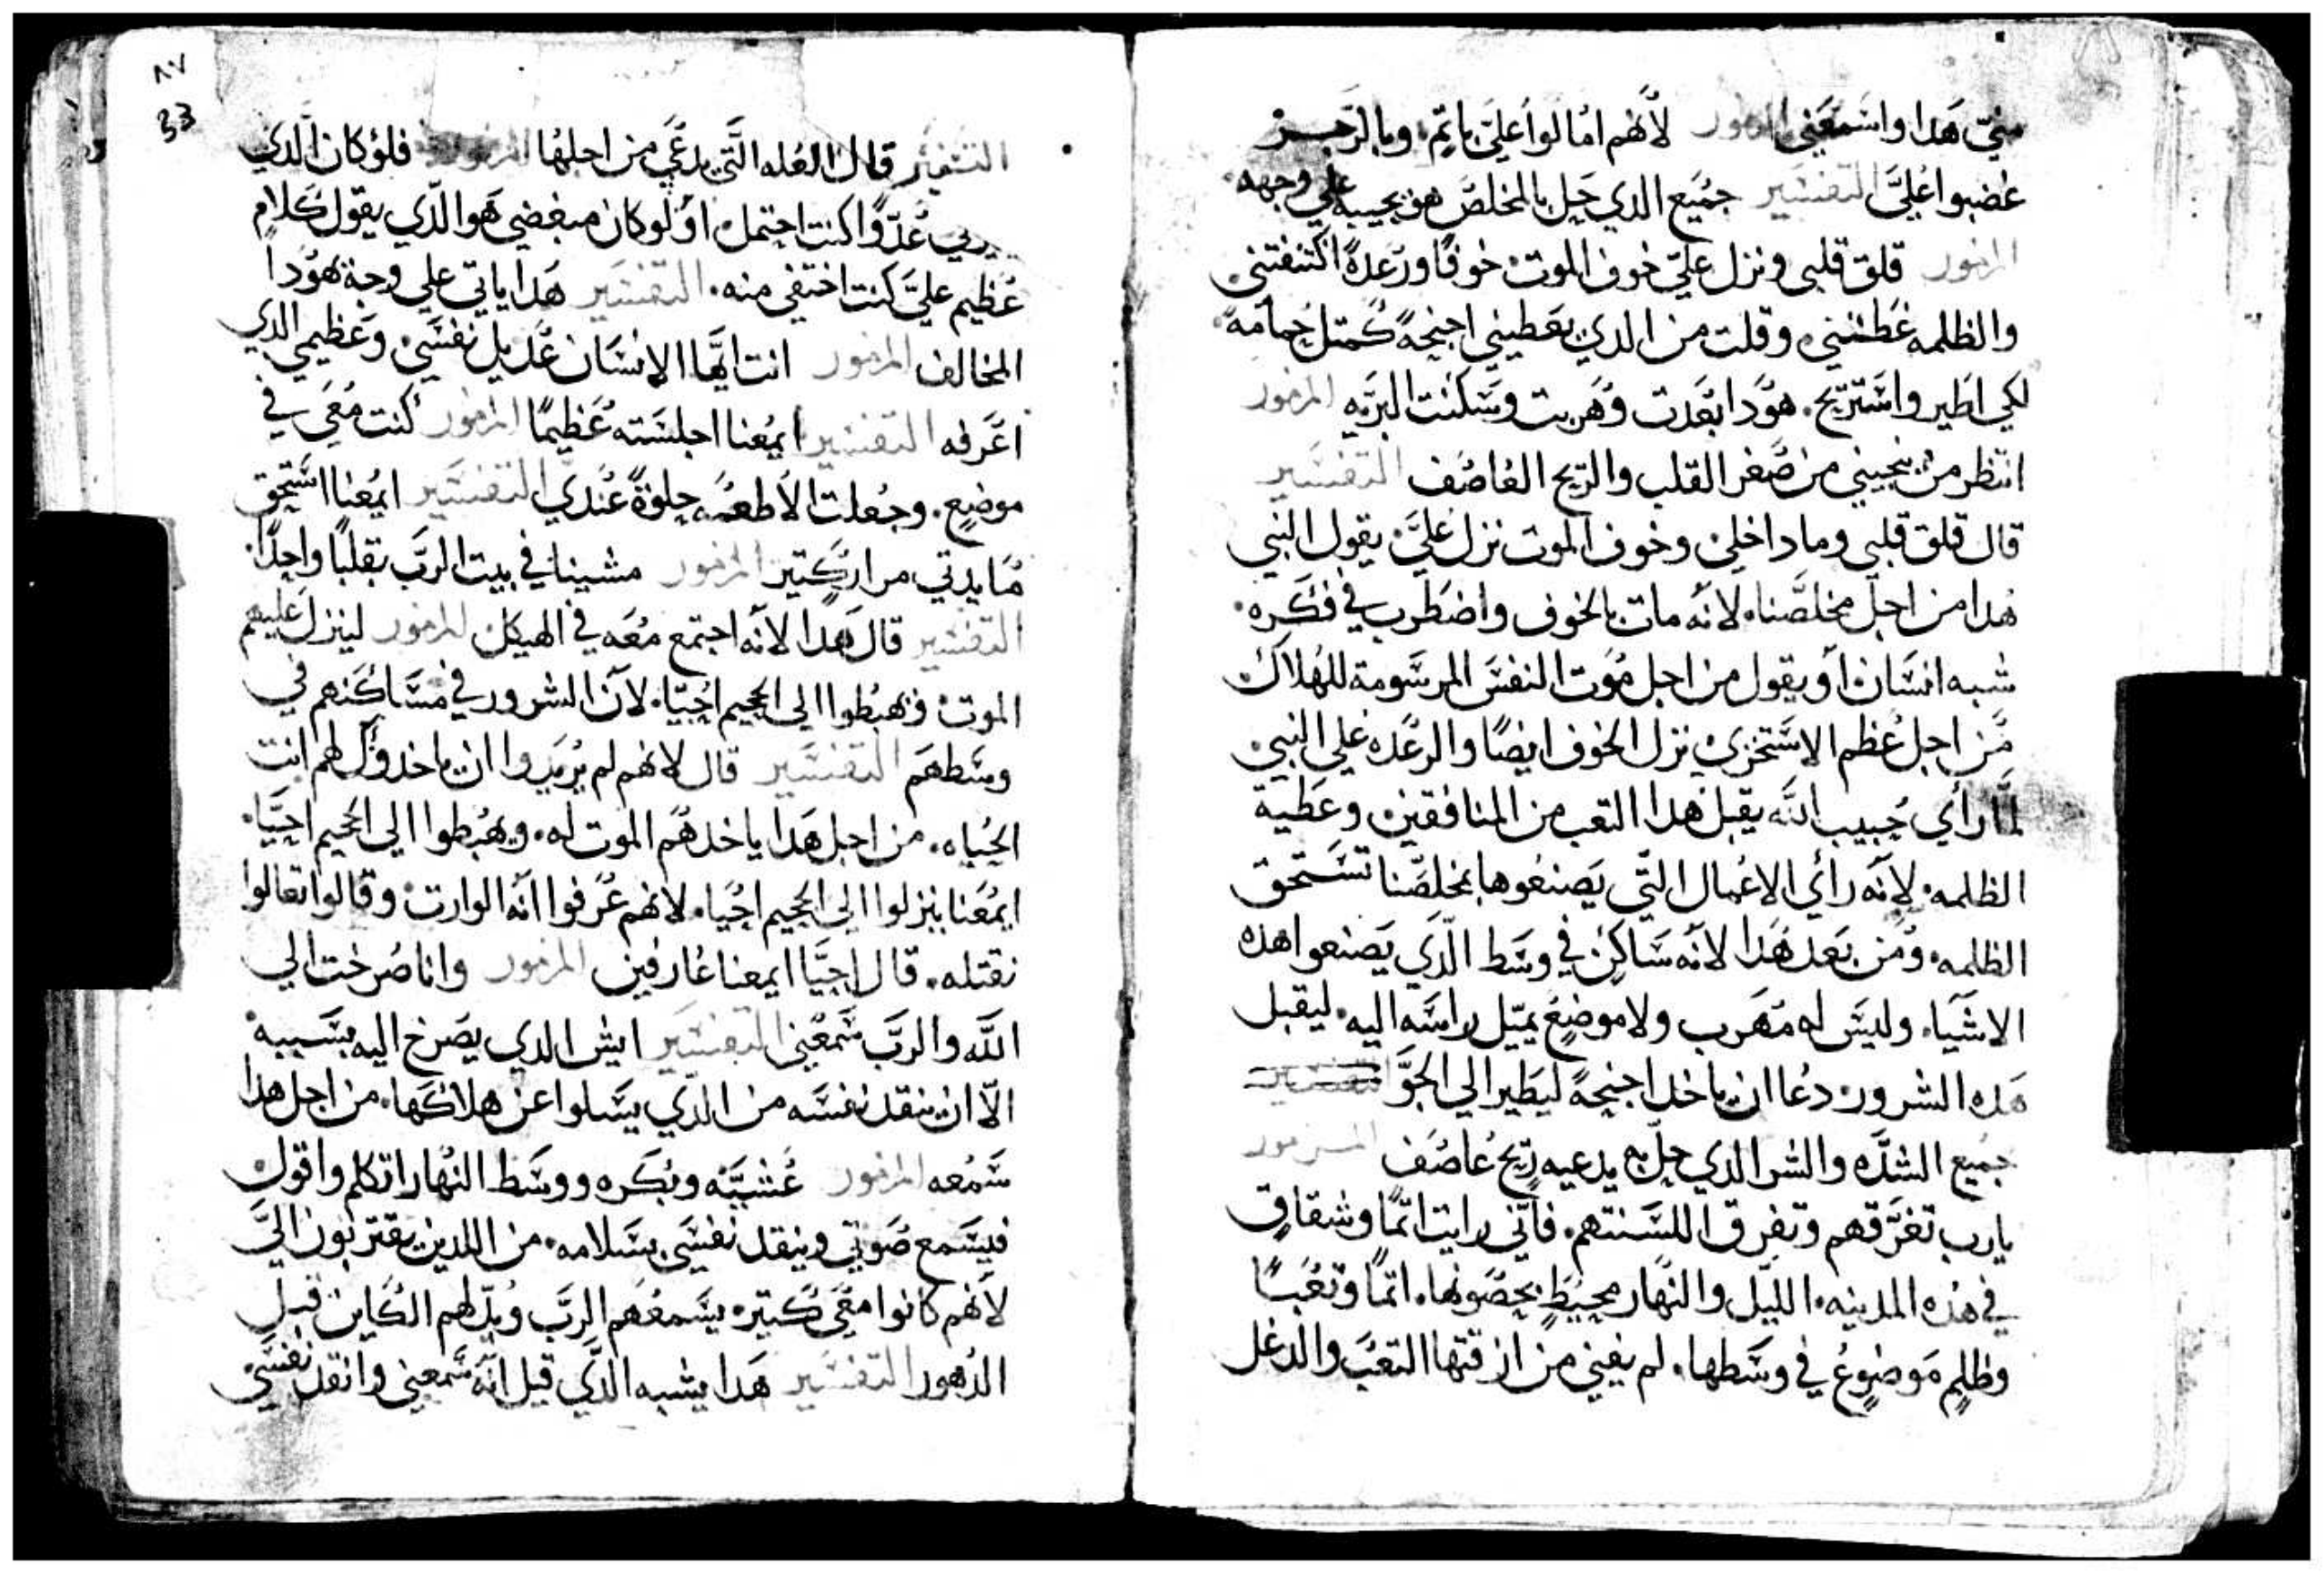 مني هدا واسمعني المزمور لأنهم امالوا علي باتم. وبالرجز
غضبوا علي التفسير جميع الدي حل بالمخلص هو يجيبه علي وجهه.
المزمور قلق قلبي ونزل علي خوف الموت خوفًا ورعدةً اكتنفتني.
والظلمه غطتني وقلت من الدي يعطيني اجنحةً كمتل حمامه.
لكي اطير واستريح. هودا ابعدت وهربت وسكنت البريه المزمور
انتظر من ينجيني من صغر القلب والريح العاصف التفسير
قال قلق قلبي وما داخلي وخوف الموت نزل علي. يقول النبي
هدا من اجل مخلصنا. لانه مات بالخوف واضطرب في فكره.
شبه انسان او يقول من اجل موت النفس المرسومة للهلاك
من اجل عظم الاستخزي نزل الخوف ايضًا والرعده علي النبي.
لما رأي حبيب الله يقبل هدا التعب من المنافقين وعطية
الظلمه. لانه رأي الاعمال التي يصنعوها بمخلصنا تستحق
الظلمه. ومن بعد هدا لانه ساكن في وسط الدي يصنعوا هده
الاشياء. وليس له مهرب ولا موضع يميل راسه اليه. ليقبل
هده الشرور دعا ان ياخد اجنحةً ليطير الي الجو التفسير
جميع الشده والشر الدي حل به يدعيه ريح عاصف المزمور
يارب تغرقهم وتفرق اللسنتهم. فاني رايت اتمًا وشقاق
في هده المدينه. الليل والنهار محيط بحصونها. اتمًا وتعبًا
وظلم موضوع في وسطها. لم يفيني من ازقتها التعب والدغل
٨٧
33
التفسير قال العله التي يدعي من اجلها المزمور فلو كان الدي
يريبي عدوًا كنت احتمل. او لو كان مبغضي هو الدي يقول كلام
عظيم علي كنت اختفي منه. التفسير هدا ياتي علي وجه يهودا
المخالف المزمور انت ايها الانسان عديل نفسي. وعظيمي الدي
اعرفه التفسير ايمعنا اجلسته عظيمًا المزمور كنت معي في
موضع. وجعلت الاطعمه حلوةً عندي التفسير ايمعنا استحق
مايدتي مرار كتير المزمور مشينا في بيت الرب بقلبًا واحدًا.
التفسير قال هدا لانه اجتمع معه في الهيكل المزمور لينزل عليهم
الموت فهبطوا الي الجحيم احيًا. لان الشرور في مساكنهم في
وسطهم التفسير قال لانهم لم يريدوا ان ياخدوك لهم انت
الحياه. من اجل هدا ياخدهم الموت له. ويهبطوا الي الجحيم احيًا.
ايمعنا ينزلوا الي الجحيم احيًا. لانهم عرفوا انه الوارت وقالوا تعالوا
نقتله. قال احيًا ايمعنا عارفين المزمور وانا صرخت الي
الله والرب سمعني التفسير ايش الدي يصرخ اليه بسببه
الا ان ينقد نفسه من الدي يسلوا عن هلاكها. من اجل هدا
سمعه المزمور عشيه وبكره ووسط النهار اتكلم واقول
فيسمع صوتي وينقد نفسي بسلامه. من اللدين يقتربون الي
لانهم كانوا معي كتيره يسمعهم الرب ويدلهم الكاين قبل
الدهور التفسير هدا يشبه الدي قيل انه سمعني وانقد نفسي